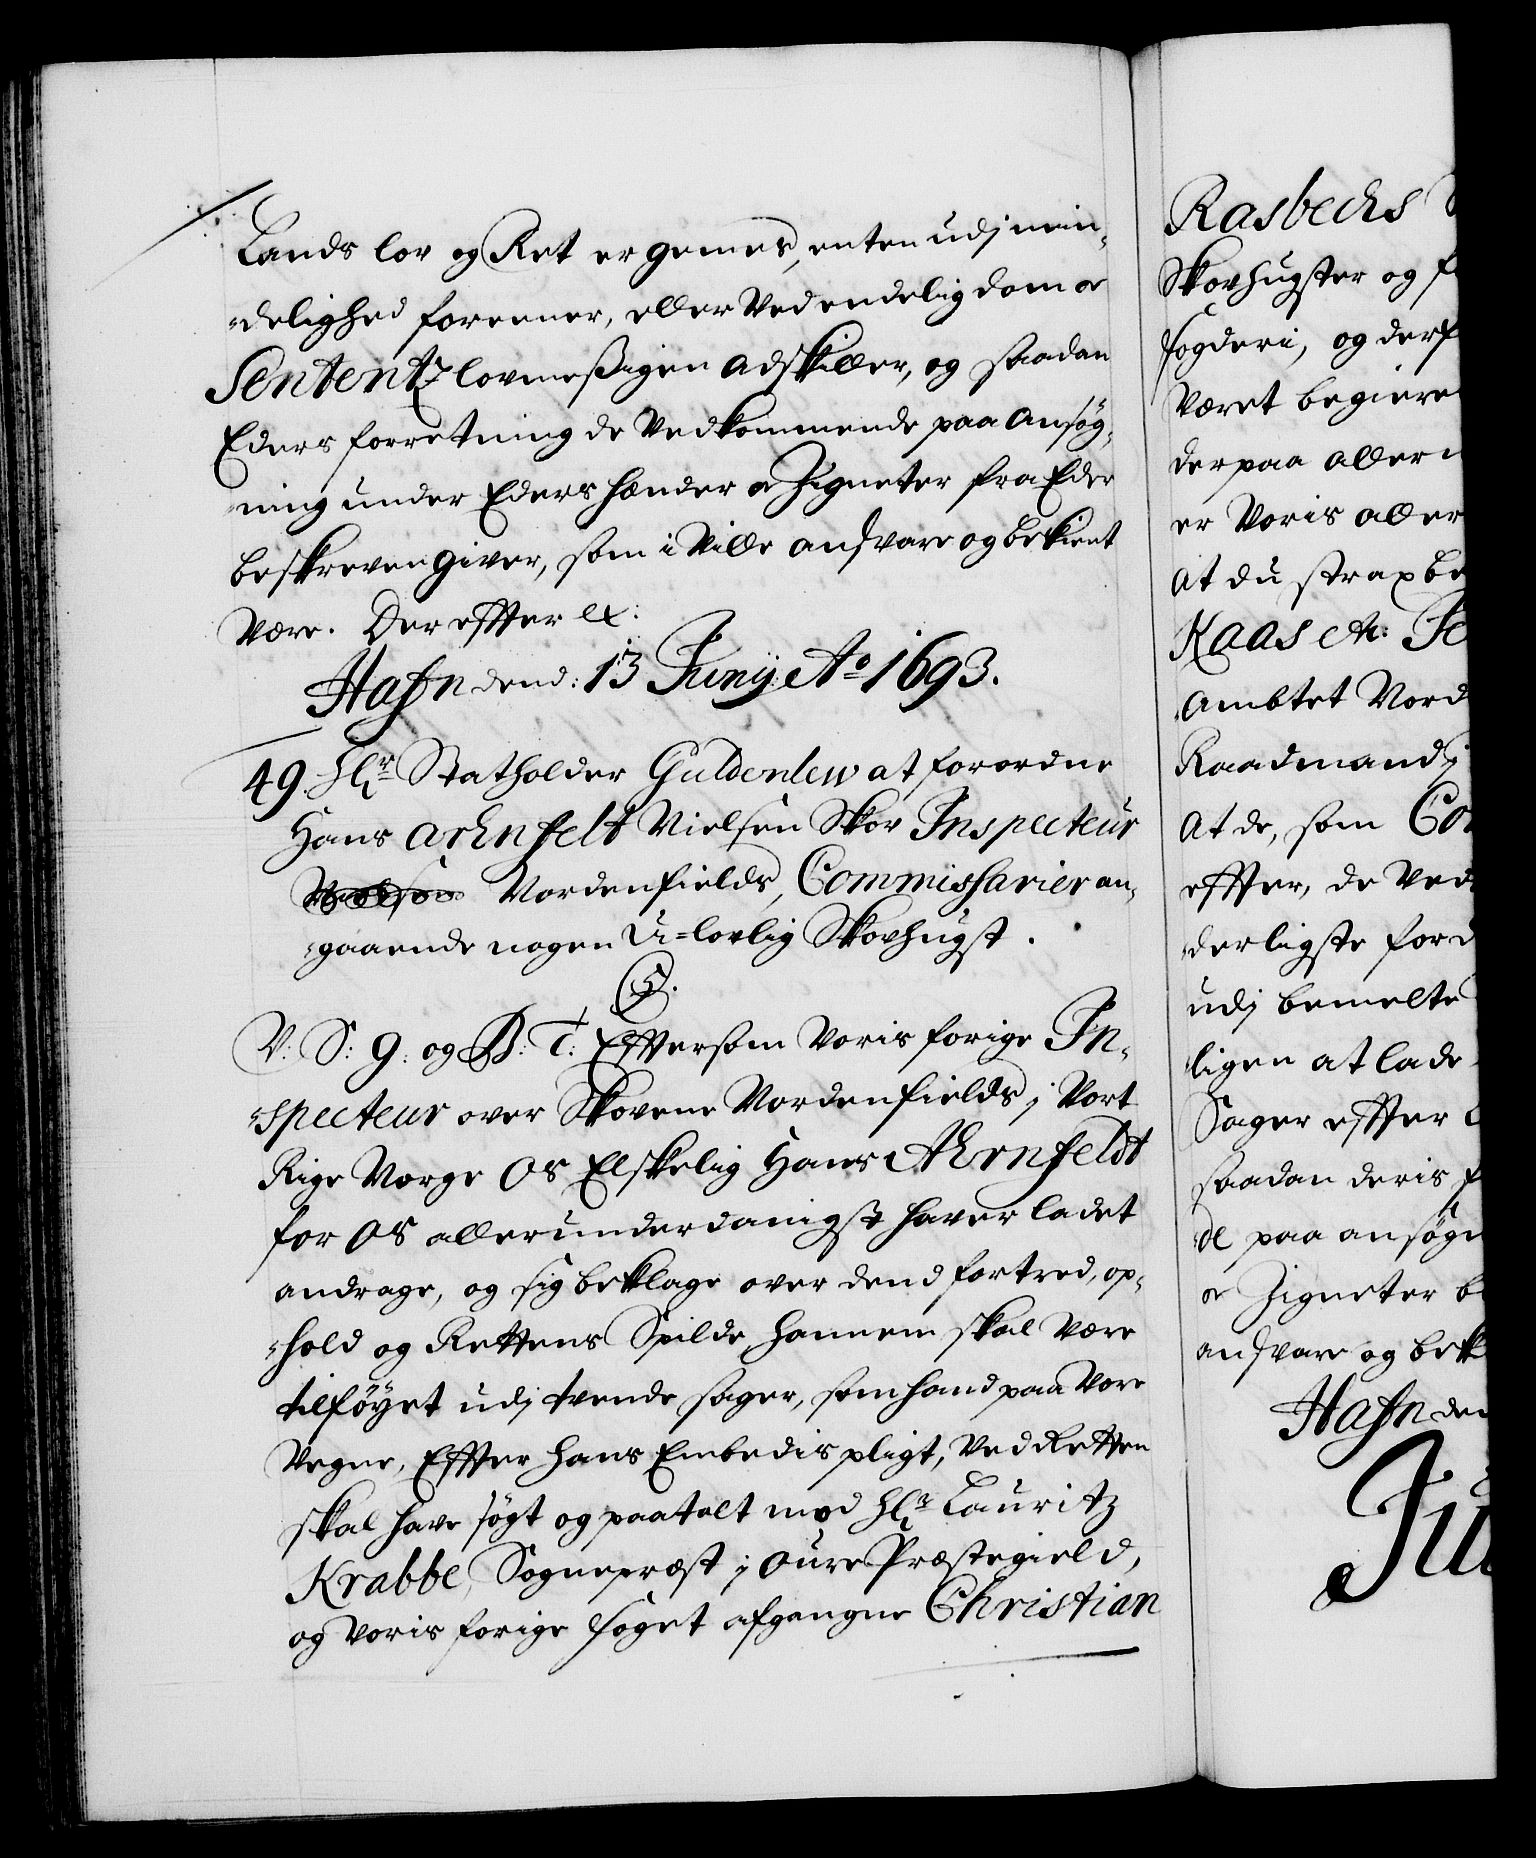 Lands lov og Ret er gemes, enten udj min-
-delighed foreener, eller Ved endelig dom oc
Sententz lovmeßigen adskiller, og saadan
Eders forretning de Vedkommende paa ansøg-
ning under Eders hænder oc Zigneter fra Eder
beskreven giver, som i Ville andsvare og bekient
være. Der effter etc:
Hafn dend: 13 Junij Ao 1693.
49. Hr. Statholder Guldenlew at forordne
Hans Arenfelt Nielsøn Skov Inspecteur
Nordenfields, Commissarier an-
-gaaende nogen U-lovlig Skovhugst.
C5.
V: S: G: og B: T: Efftersom Voris forige In-
-specteur over Skovene Nordenfields j Vort
Rige Norge Os Elskelig Hans AErnfeldt
for Os allerunderdanigst haver ladet
andrage, og sig beklage over dend fortred, op-
-hold og Rettens Spilde hannem skal være
tilføyet udj tvende sager, som hand paa Vore
Vegne, Effter hans Embedis pligt, Ved Retten
skal have søgt og paatalt mod Hr. Lauritz
Krabbe, Sognepræst j Oure Præstegield,
og Voris forige foget afgangne Christian
Rasbechs
Skovhugster og
fogderi, og
Været
derpaa
er Voris
At du strax
Kaas
Ambtet
Raadmand
At de, som
effter, de
-derligste
udj bemelte
ligen at lade
Sager effter
saadan deris
paa
oc Zigneter
andsvare og
Hafn